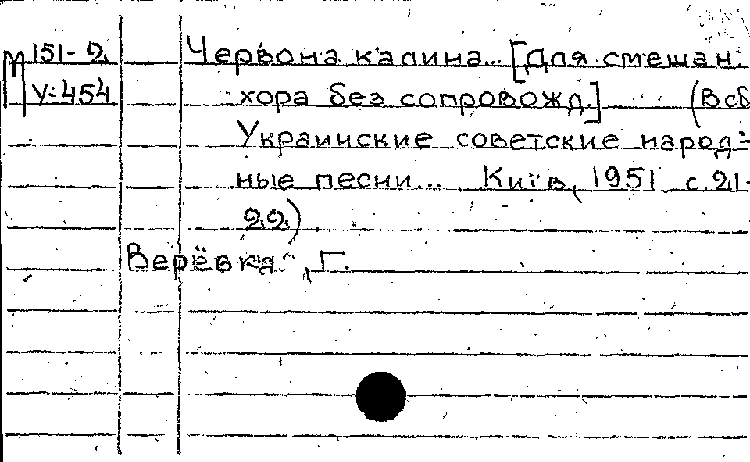 М 151-2 Червона калина... [Для смешан.
У-454 хора без сопровожд.] (В сб.
Украинские советские народ-
ные песни... Київ, 1951 с. 21-
22)
Верёвка, Г.